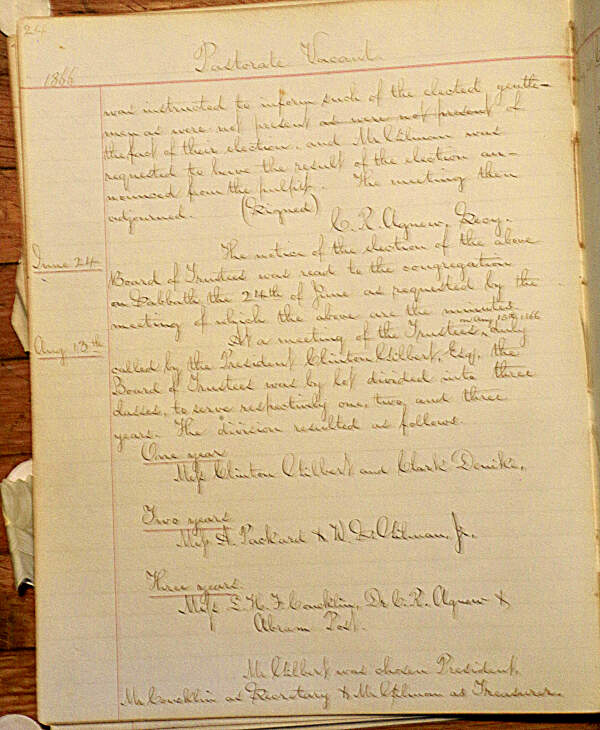 24
Pastorate Vacant.
1866
was instructed to inform such of the elected gentle-
men as were not present as were not present of
the fact of their election, and Mr Gilman was
requested to have the result of the election an-
nounced from the pulpit. The meeting then
adjourned. (Signed)
C. R. Agnew, Secy.
June 24
The notice of the election of the above
Board of Trustees was read to the congregation
on Sabbath the 24th of June as requested by the
meeting of which the above are the minutes.
Aug 13th
on Aug 13th, 1866
At a meeting of the Trustees, duly
called by the President Clinton Gilbert, Esq, the
Board of Trustees was by lot divided into three
classes, to serve respectively one, two, and three
years. The division resulted as follows.
One year
Mess Clinton Gilbert and Clark
Two years
Mess A. Packard & W. S. Gilman, Jr.
Three years.
Mess L. H. F. Conklin, Dr C. R. Agnew &
Abram Post.
Mr Gilbert was chosen President,
Mr Conklin as Secretary & Mr Gilman as Treasurer.